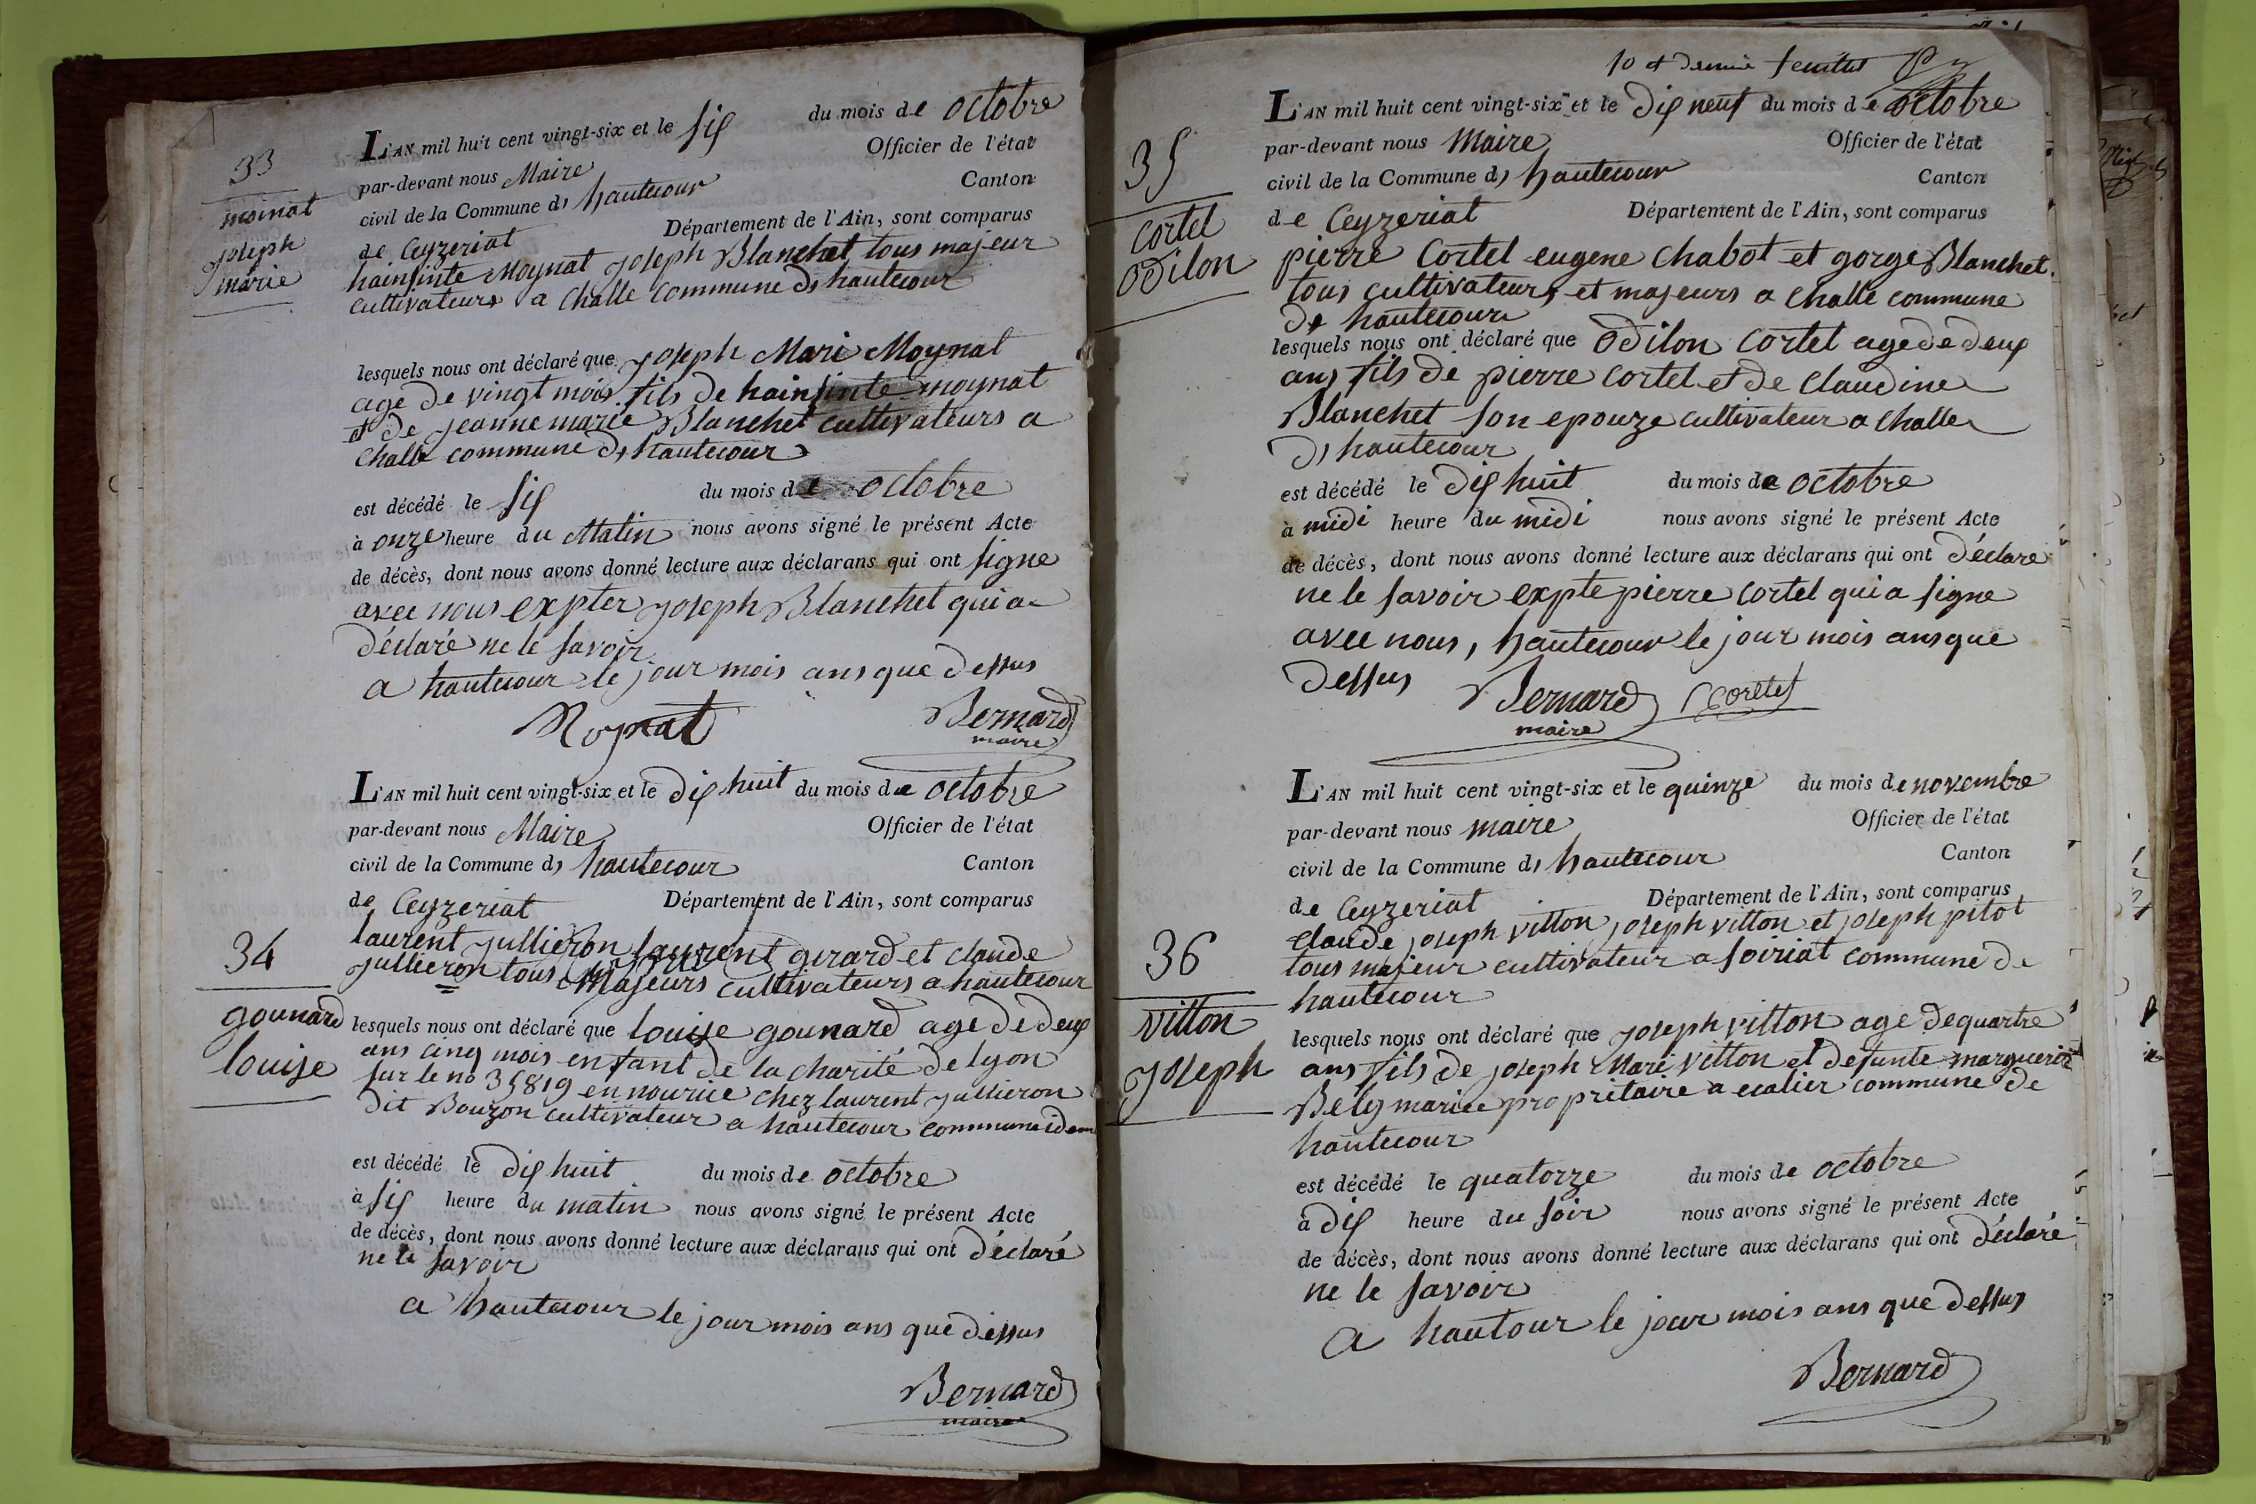 33
moinat
joseph
marie
L'AN mil huit cent vingt-six et le six du mois de octobre
par-devant nous Maire Officier de l'état
civil de la Commune de hautecour Canton
de Ceyzeriat Département de l'Ain, sont comparus
hainsinte Moynat joseph Blanchet tous majeur
cultivateurs a Challe commune de hautecour
lesquels nous ont déclaré que joseph Mari Moynat
age de vingt mois fils de hainsinte moynat
et de jeanne marie Blanchet cultivateurs a
Challe commune de hautecour
est décédé le six du mois de octobre
à onze heure du Matin nous avons signé le présent Acte
de décès, dont nous avons donné lecture aux déclarans qui ont signe
avec nous expter joseph Blanchet qui a
déclaré ne le savoir
a hautecour le jour mois ans que dessus
Moynat Bernard
maire
34
gounard
louise
L'AN mil huit cent vingt-six et le dix huit du mois de octobre
par-devant nous Maire Officier de l'état
civil de la Commune de hautecour Canton
de Ceyzeriat Département de l'Ain, sont comparus
laurent jullieron laurent girard et claude
jullieron tous majeurs cultivateurs a hautecour
lesquels nous ont déclaré que louise gounard age de deux
ans cinq mois enfant de la charité de lyon
sur le no 35819 en nourice chez laurent jullieron
dit Bouzon cultivateur a hautecour commune idem
est décédé le dix huit du mois de octobre
à six heure du matin nous avons signé le présent Acte
de décès, dont nous avons donné lecture aux déclarans qui ont déclaré
ne le savoir
a hautecour le jour mois ans que dessus
Bernard
maire
10 et demie feuillet
35
Cortel
Odilon
L'AN mil huit cent vingt-six et le dix neuf du mois de octobre
par-devant nous Maire Officier de l'état
civil de la Commune de hautecour Canton
de Ceyzeriat Département de l'Ain, sont comparus
pierre Cortel eugene Chabot et gorge Blanchet
tous cultivateurs et majeurs a Challe commune
de hautecour
lesquels nous ont déclaré que Odilon Cortel age de deux
ans fils de pierre Cortel et de Claudine
Blanchet son epouze cultivateur a Challe
de hautecour
est décédé le dix huit du mois de octobre
à midi heure du midi nous avons signé le présent Acte
de décès, dont nous avons donné lecture aux déclarans qui ont déclare
ne le savoir expte pierre Cortel qui a signe
avec nous, hautecour le jour mois ans que
dessus Bernard Cortel
maire
36
vitton
joseph
L'AN mil huit cent vingt-six et le quinze du mois de novembre
par-devant nous maire Officier de l'état
civil de la Commune de hautecour Canton
de Ceyzeriat Département de l'Ain, sont comparus
claude joseph vitton joseph vitton et joseph pitot
tous majeur cultivateur a soiriat commune de
hautecour
lesquels nous ont déclaré que joseph vitton age de quartre
ans fils de joseph Mari vitton et defunte marguerite
Bely mariee propritaire a ecalier commune de
hautecour
est décédé le quatorze du mois de octobre
à dix heure du soir nous avons signé le présent Acte
de décès, dont nous avons donné lecture aux déclarans qui ont déclaré
ne le savoir
a hautour le jour mois ans que dessus
Bernard